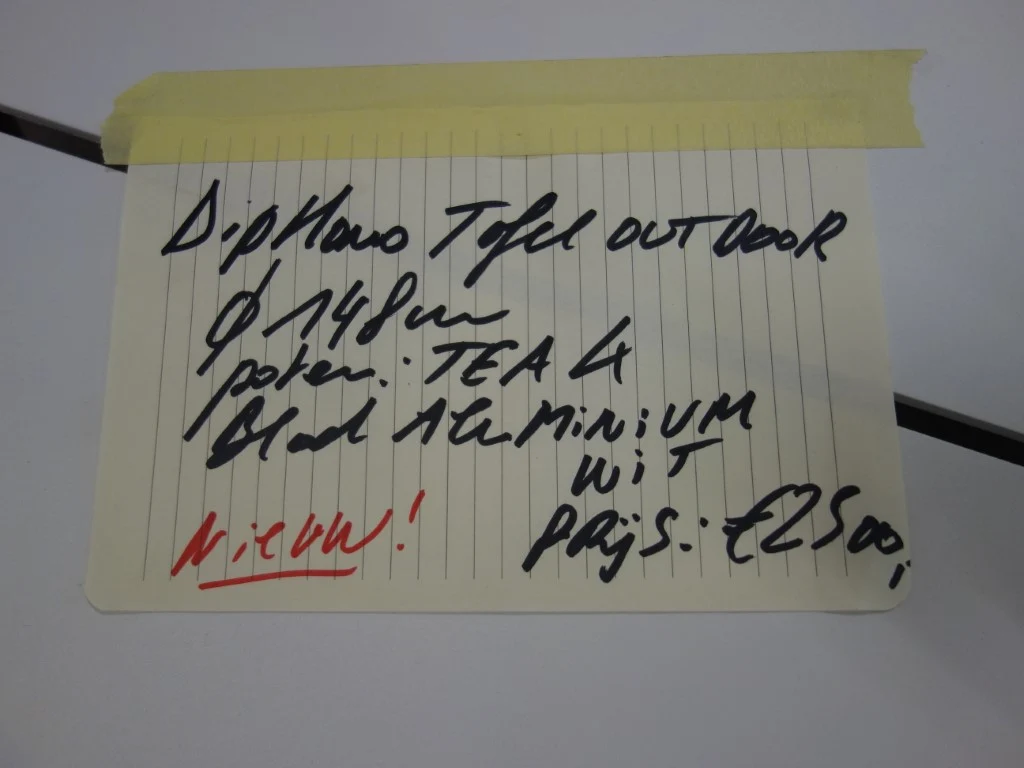 Diphano Tafel OUTDOOR
Ø 148cm
poten: TEAK
Blad AluMiNiUM
WiT
NIEUW!
PRijS: €2500,